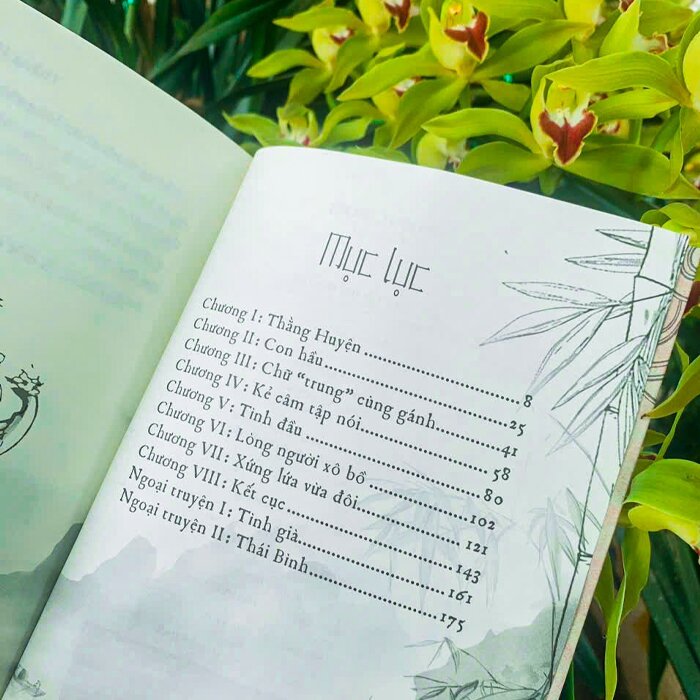 Mục lục
Chương I: Thằng Huyện........................8
Chương II: Con hầu........................25
Chương III: Chữ “trung” cùng gánh........................41
Chương IV: Kẻ câm tập nói........................58
Chương V: Tình đầu........................80
Chương VI: Lòng người xô bồ........................102
Chương VII: Xứng lứa vừa đôi........................121
Chương VIII: Kết cục........................143
Ngoại truyện I: Tình già........................161
Ngoại truyện II: Thái Bình........................175